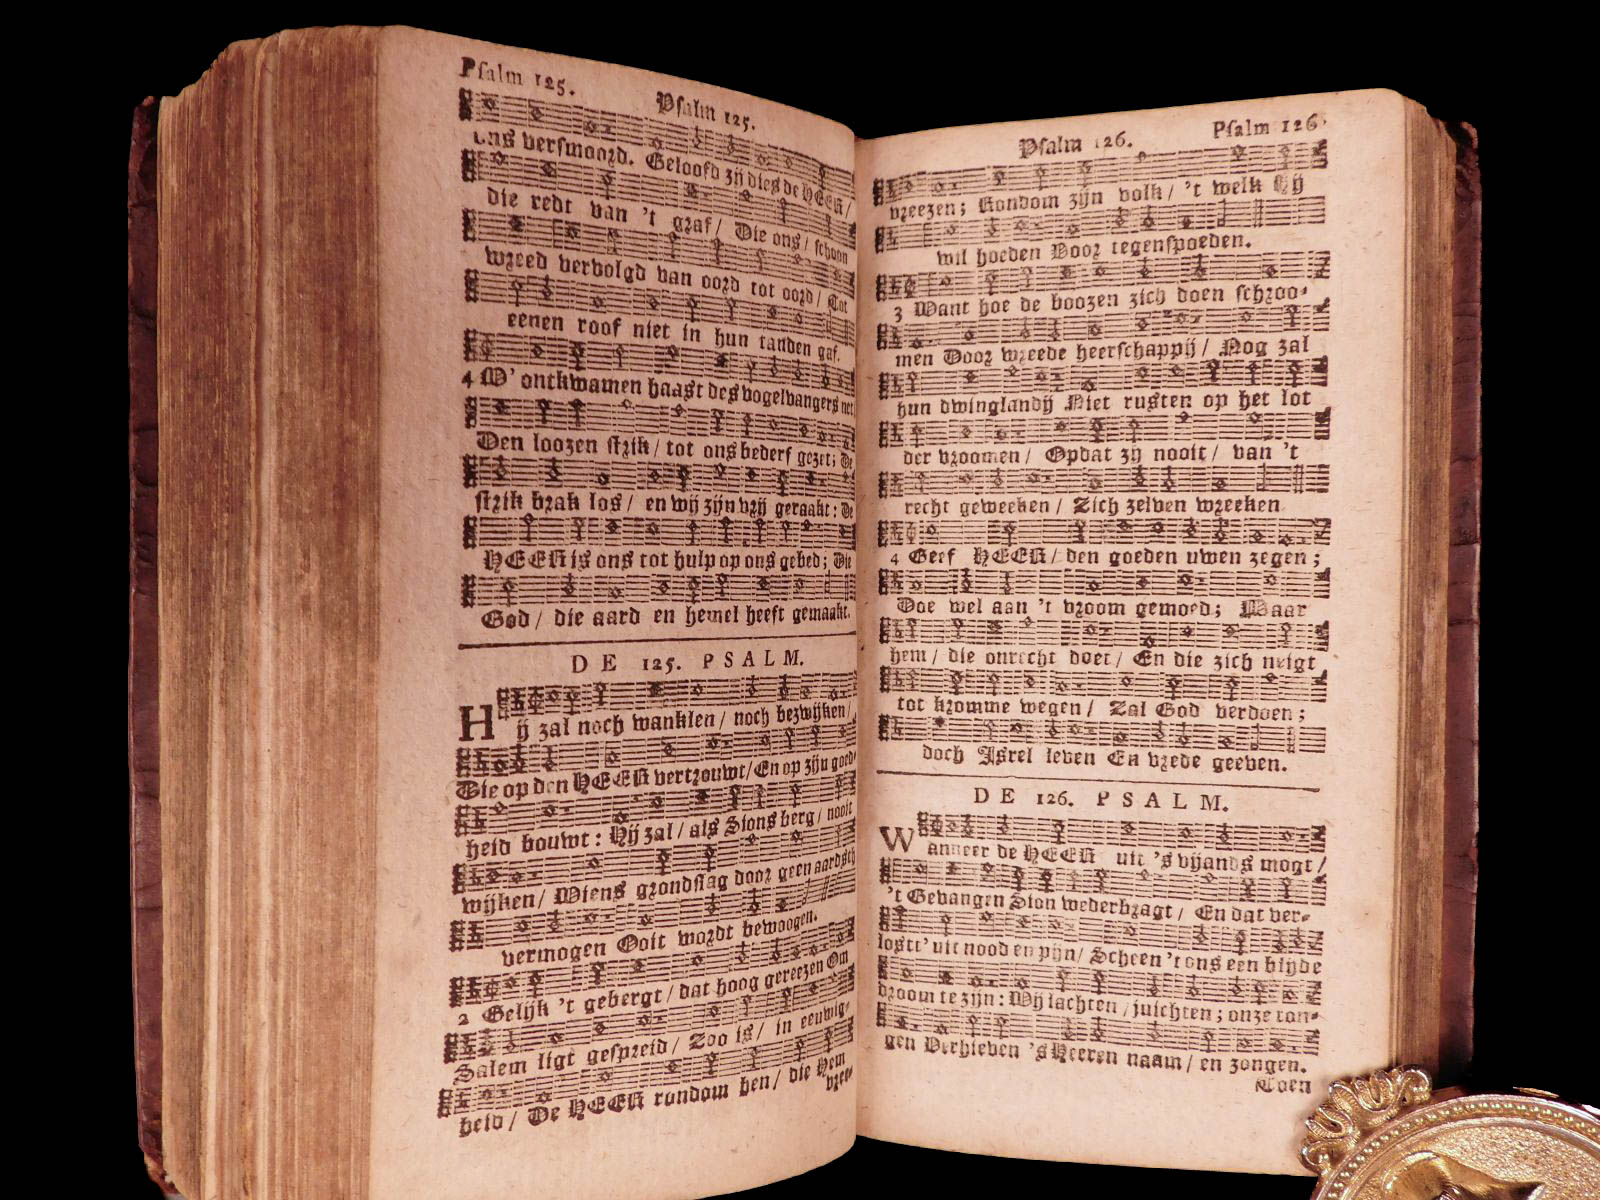 Psalm 125. Psalm 125.
ons versmoord. Geloofd zij dies de HEER/
die redt van 't graf/ Die ons/ schoon
wreed vervolgd van oord tot oord/ Tot
eenen roof niet in hun tanden gaf.
4 W' ontkwamen haast des vogelvangers net
Den loozen strik/ tot ons bederf gezet; De
strik brak los/ en wij zijn vrij geraakt: De
HEER is ons tot hulp op ons gebed; Die
God/ die aard en hemel heeft gemaakt.
DE 125. PSALM.
Hij zal noch wanklen/ noch bezwijken/
Die op den HEER vertrouwt/ En op zijn goed-
heid bouwt: Hij zal/ als Sions berg/ nooit
wijken/ Wiens grondslag door geen aardsch
vermogen Ooit wordt bewoogen.
2 Gelijk 't gebergt/ dat hoog gereezen Om
Salem ligt gespreid/ Zoo is/ in eeuwig-
heid/ De HEER rondom hen/ die Hem
vree-
Psalm 126. Psalm 126
vreezen; Rondom zijn volk/ 't welk Hij
wil hoeden Voor tegenspoeden.
3 Want hoe de boozen zich doen schroo-
men Door wreede heerschappij/ Nog zal
hun dwinglandij Niet rusten op het lot
der vroomen/ Opdat zij nooit/ van 't
recht geweeken/ Zich zelven wreeken
4 Geef HEER/ den goeden uwen zegen;
Doe wel aan 't vroom gemoed; Maar
hem/ die onrecht doet/ En die zich neigt
tot kromme wegen/ Zal God verdoen;
doch Isrel leven En vrede geeven.
DE 126. PSALM.
Wanneer de HEER uit 's vijands magt/
't Gevangen Sion wederbragt/ En dat ver-
lostt' uit nood en pijn/ Scheen 't ons een blijde
droom te zijn: Wij lachten/ juichten; onze ton-
gen Verhieven 's Heeren naam/ en zongen.
Toen